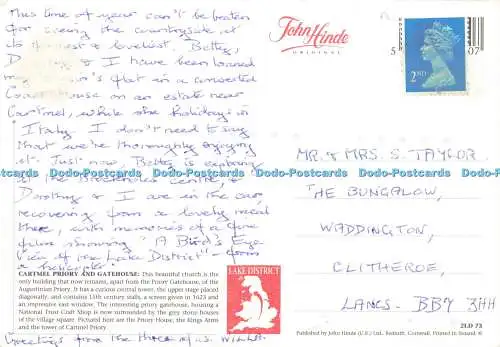 This time of year can't be beaten
for seeing the countryside at
its loveliest. Betty,
& I have been loaned
flat in a converted
house on an estate near
Cartmel, while she holidays in
Italy & I don't need to say
that we're thoroughly enjoying
it. Just now, Betty is exploring
at the centre, &
Dorothy & I are in the car,
recovering from a lovely meal
there, with memories of a fine
film showing "A Bird's Eye
View of the Lake District" - from
a helicopter
CARTMEL PRIORY AND GATEHOUSE: This beautiful church is the
only building that now remains, apart from the Priory Gatehouse, of the
Augustinian Priory. It has a curious central tower, the upper stage placed
diagonally, and contains 15th century stalls, a screen given in 1623 and
an impressive east window. The interesting priory gatehouse, housing a
National Trust Craft Shop is now surrounded by the grey stone houses
of the village square. Pictured here are the Priory House, the Kings Arms
and the tower of Cartmel Priory
LAKE DISTRICT
Greetings from the three of us
John Hinde
ORIGINAL
5 07
2ND
MR & MRS. S. TAYLOR
THE BUNGALOW,
WADDINGTON,
CLITHEROE,
LANCS. BB7 3HH
2LD 73
Published by John Hinde (U.K.) Ltd., Redruth, Cornwall. Printed in Ireland. ©
Dodo-Postcards Dodo-Postcards Dodo-Postcards Dodo-Postcards